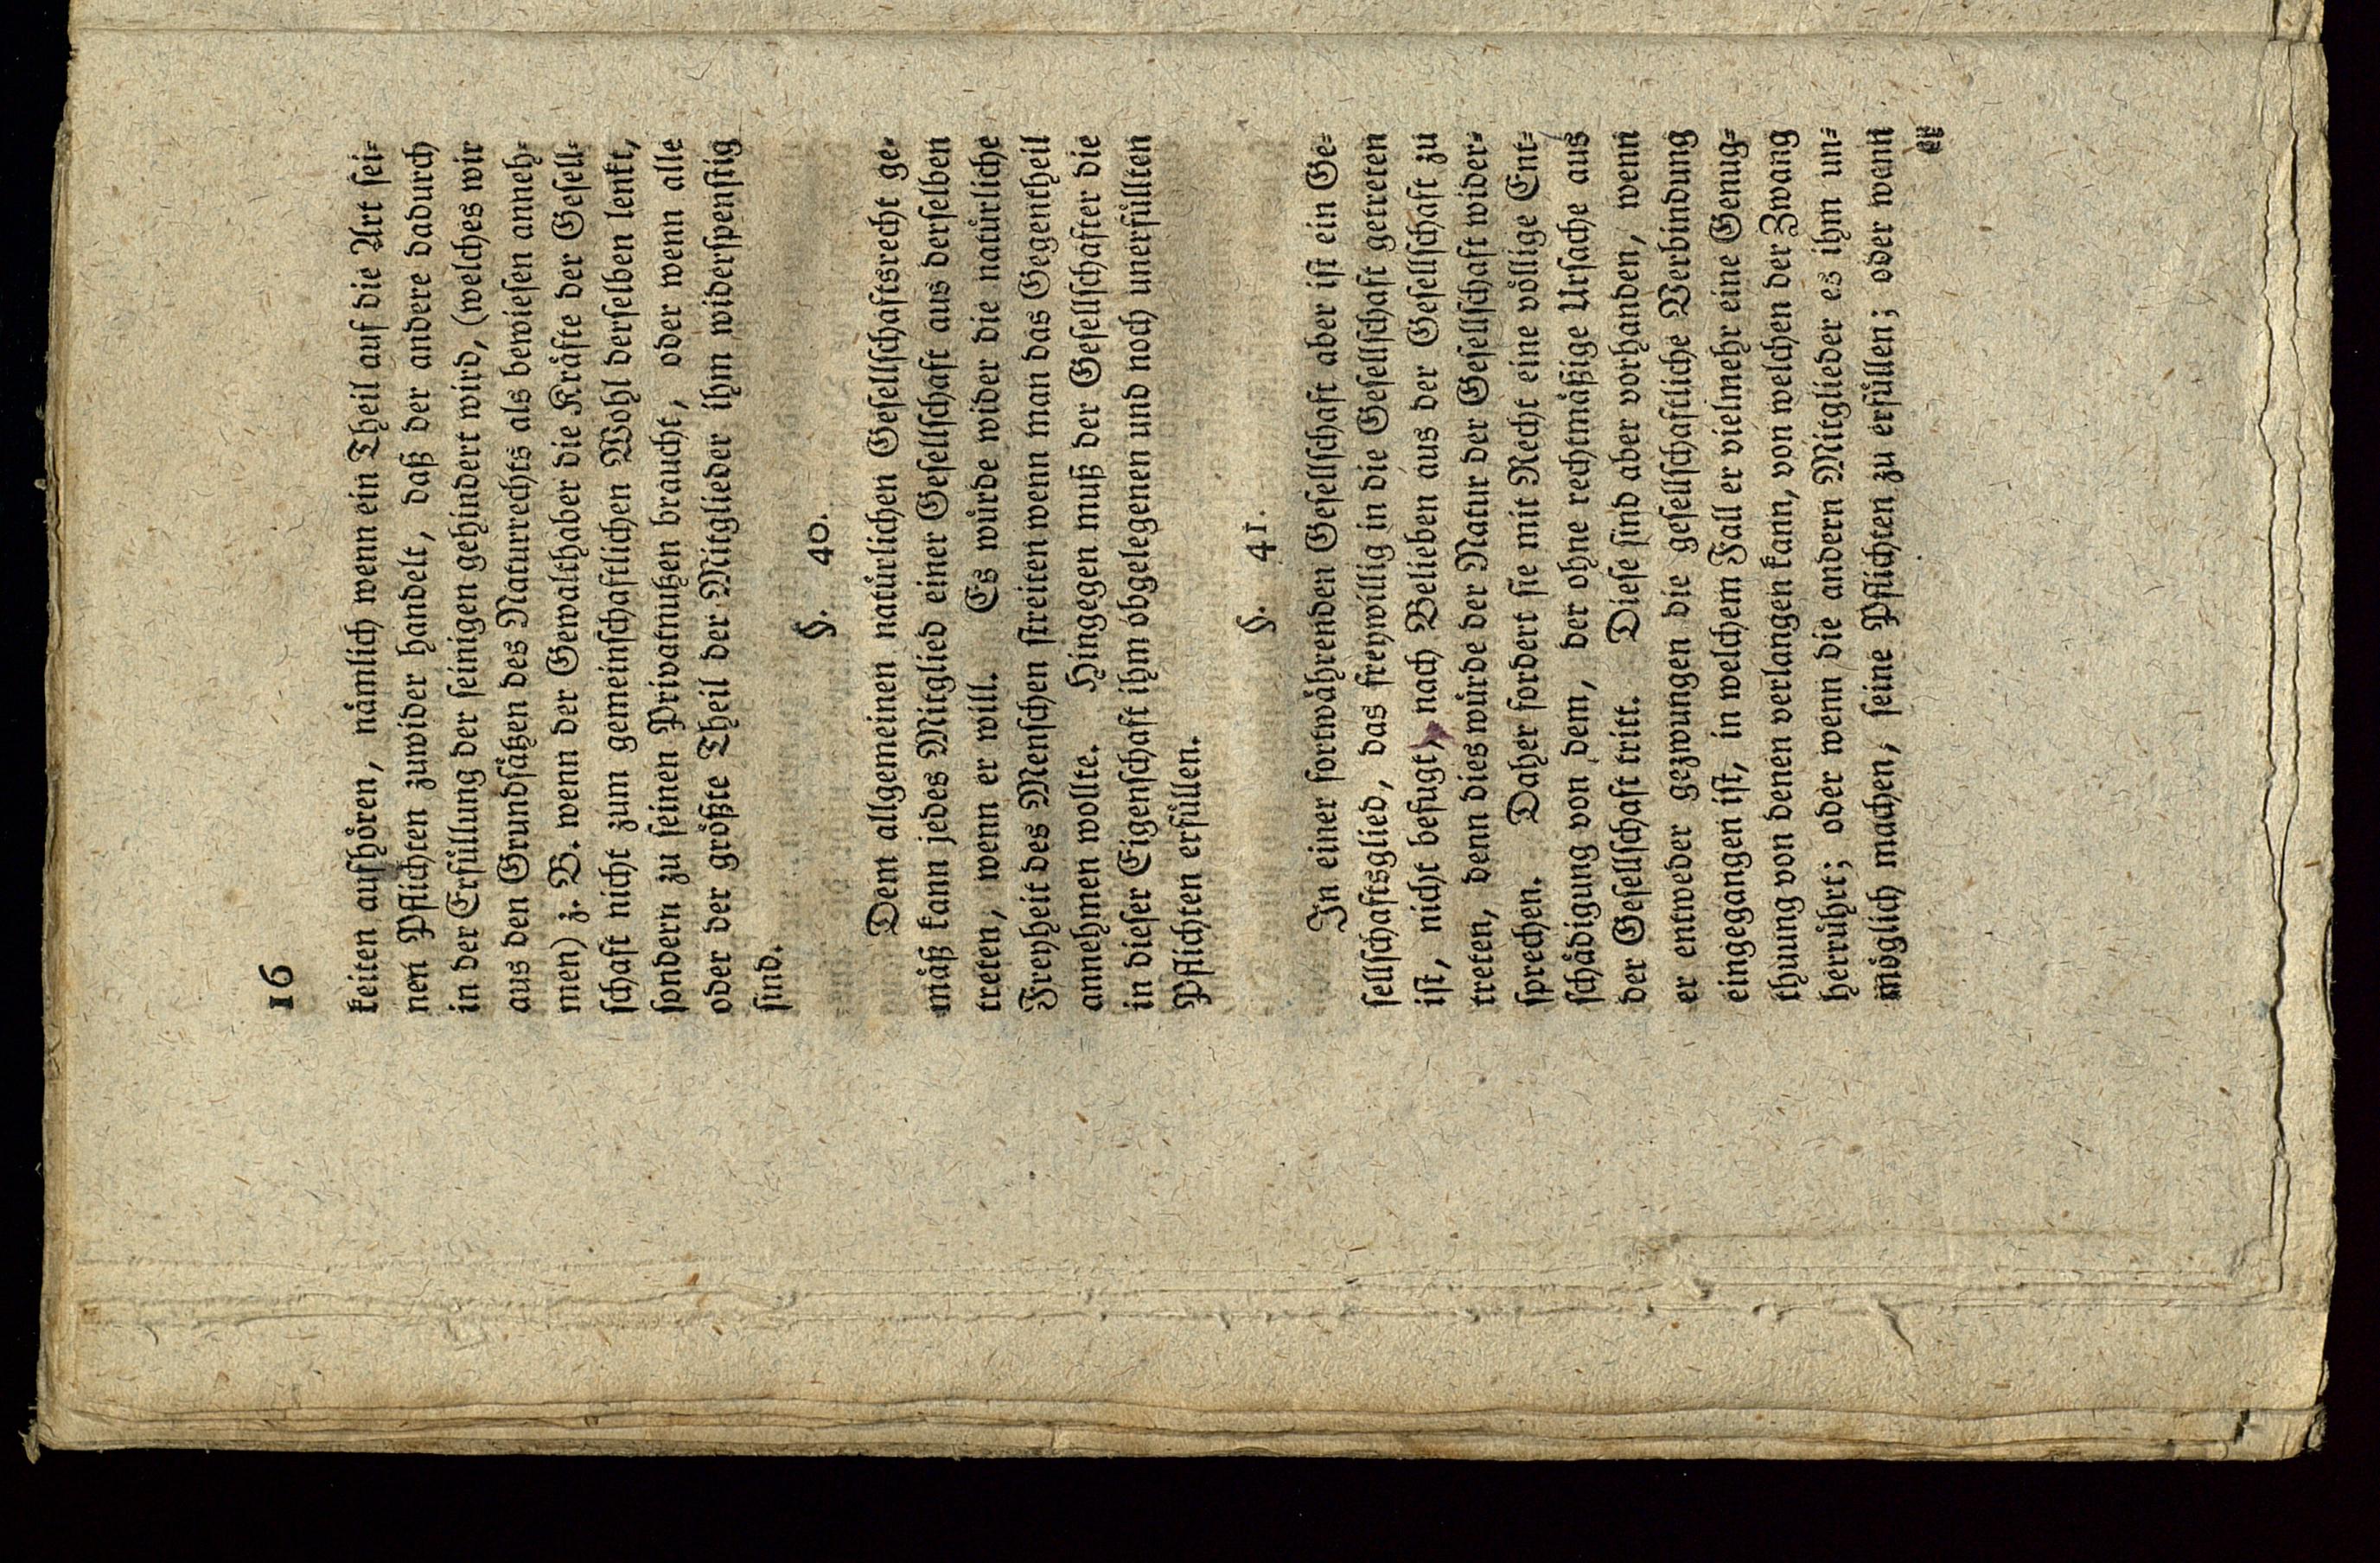 16
keiten aufhören, nämlich wenn ein Theil auf die Art sei⸗
nen Pflichten zuwider handelt, daß der andere dadurch
in der Erfüllung der seinigen gehindert wird, (welches wir
aus den Grundsätzen des Naturrechts als bewiesen anneh⸗
men) z. B. wenn der Gewalthaber die Kräfte der Gesell⸗
schaft nicht zum gemeinschaftlichen Wohl derselben lenkt,
sondern zu seinen Privatnutzen braucht, oder wenn alle
oder der größte Theil der Mitglieder ihm widerspenstig
sind.
§. 40.
Dem allgemeinen natürlichen Gesellschaftsrecht ge⸗
mäß kann jedes Mitglied einer Gesellschaft aus derselben
treten, wenn er will. Es würde wider die natürliche
Freyheit des Menschen streiten wenn man das Gegentheil
annehmen wollte. Hingegen muß der Gesellschafter die
in dieser Eigenschaft ihm obgelegenen und noch unerfüllten
Pflichten erfüllen.
§. 41.
In einer fortwährenden Gesellschaft aber ist ein Ge⸗
sellschaftsglied, das freywillig in die Gesellschaft getreten
ist, nicht befugt, nach Belieben aus der Gesellschaft zu
treten, denn dies würde der Natur der Gesellschaft wider⸗
sprechen. Daher fordert sie mit Recht eine völlige Ent⸗
schädigung von dem, der ohne rechtmäßige Ursache aus
der Gesellschaft tritt. Diese sind aber vorhanden, wenn
er entweder gezwungen die gesellschaftliche Verbindung
eingegangen ist, in welchem Fall er vielmehr eine Genug⸗
thuung von denen verlangen kann, von welchen der Zwang
herrührt; oder wenn die andern Mitglieder es ihm un⸗
möglich machen, seine Pflichten zu erfüllen; oder wenn